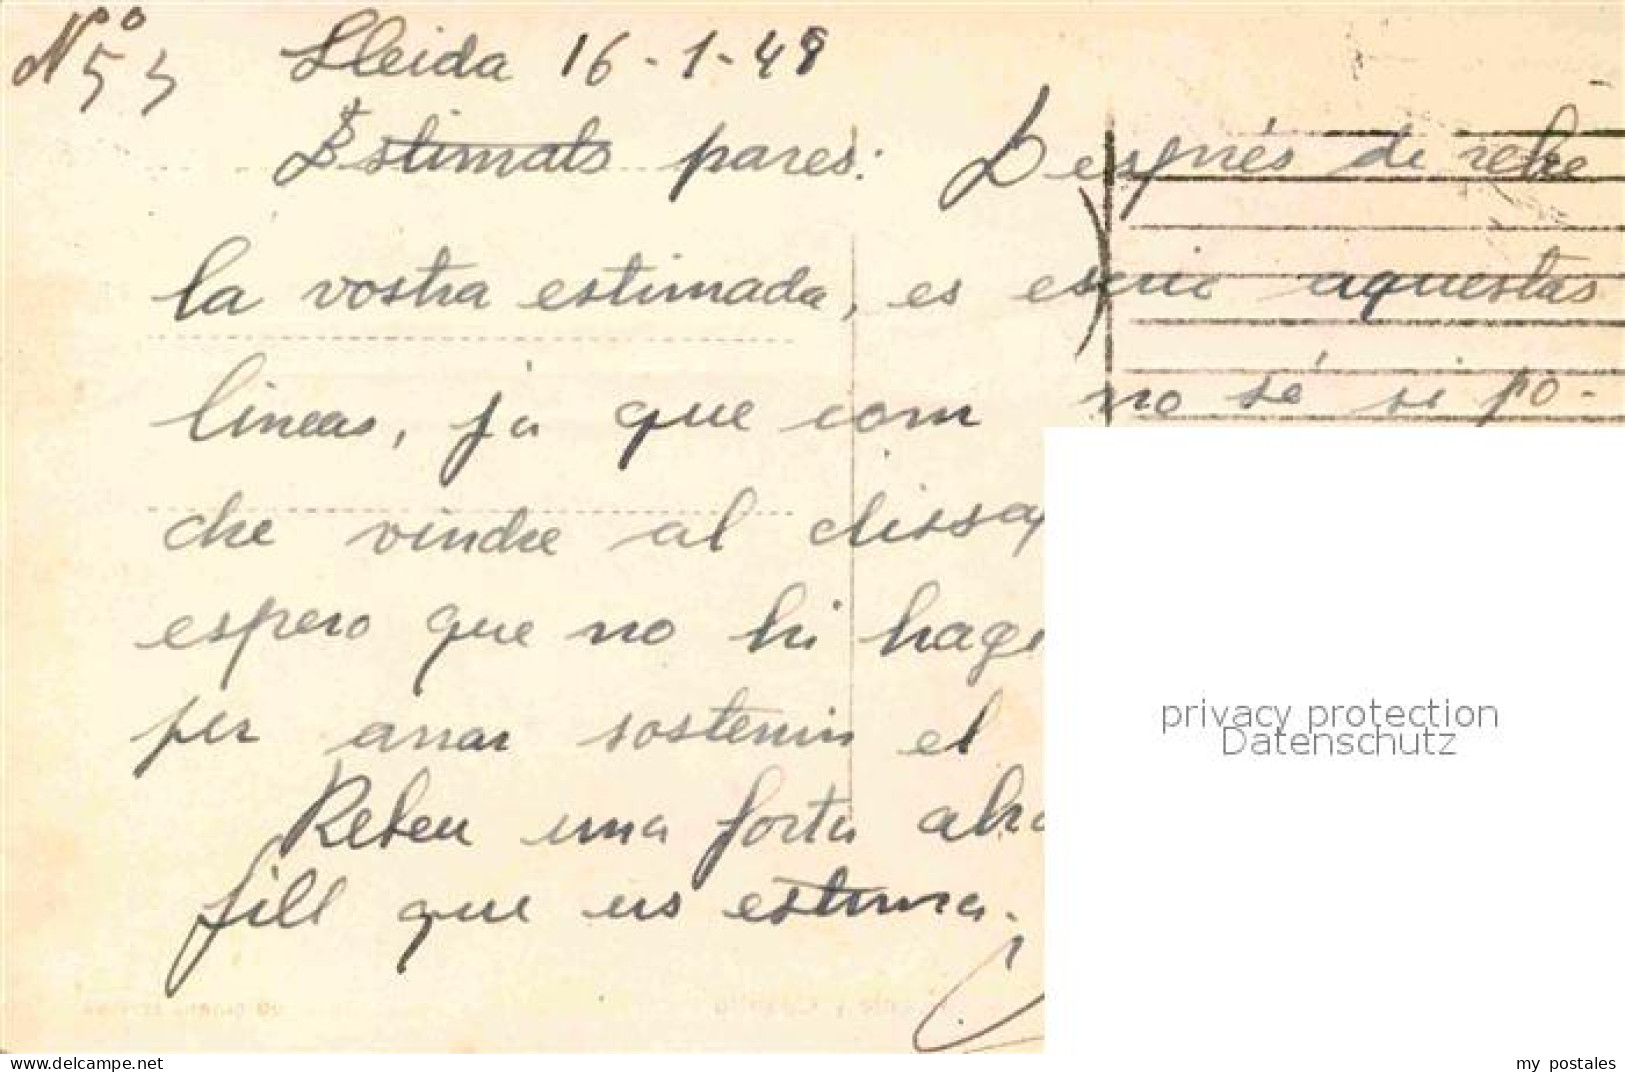 Nº 53 Lleida 16-1-49
Estimats pares: Després de rebre
la vostra estimada, es escric aquestas
lineas, ja que com no sé si po-
dre vindre al dissa
espero que no hi hag
per anar sostenin el
Rebeu una forta abra
fill que us estima.
privacy protection
Datenschutz
delcampe.net
my postales